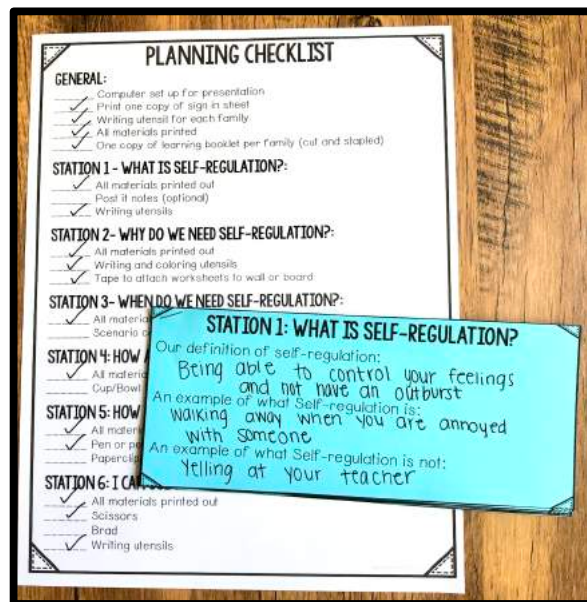 PLANNING CHECKLIST
GENERAL:
Computer set up for presentation
Print one copy of sign in sheet
Writing utensil for each family
All materials printed
One copy of learning booklet per family (cut and stapled)
STATION 1 - WHAT IS SELF-REGULATION?:
All materials printed out
Post it notes (optional)
Writing utensils
STATION 2- WHY DO WE NEED SELF-REGULATION?:
All materials printed out
Writing and coloring utensils
Tape to attach worksheets to wall or board
STATION 3- WHEN DO WE NEED SELF-REGULATION?:
All
Scenario
STATION 4: HOW
All
Cup/Bowl
STATION 5: HOW
All
Pen or
STATION 6: I
All materials printed out
Scissors
Brad
Writing utensils
STATION 1: WHAT IS SELF-REGULATION?
Our definition of self-regulation:
Being able to control your feelings
and not have an outburst
An example of what Self-regulation is:
Walking away when you are annoyed
with someone
An example of what Self-regulation is not:
Yelling at your teacher